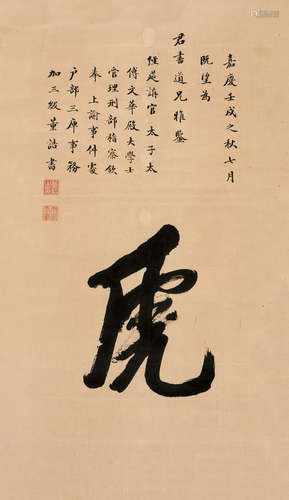 嘉慶壬戌之秋七月
既望為
君書道兄雅鑒
經筵講官太子太
傅文華殿大學士
管理刑部稽察欽
奉上諭事件處
户部三庫事務
加三級董誥書
虎